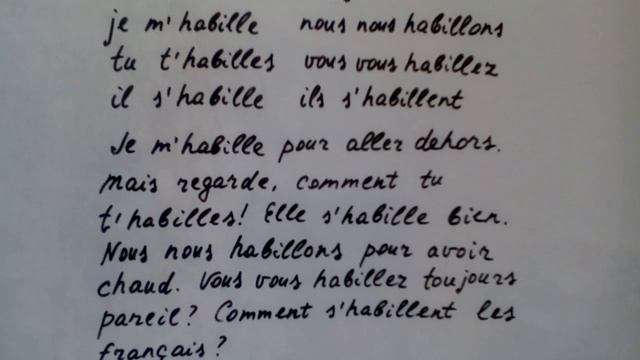 je m'habille nous nous habillons
tu t'habilles vous vous habillez
il s'habille ils s'habillent
Je m'habille pour aller dehors.
Mais regarde, comment tu
t'habilles! Elle s'habille bien.
Nous nous habillons pour avoir
chaud. Vous vous habillez toujours
pareil? Comment s'habillent les
français?